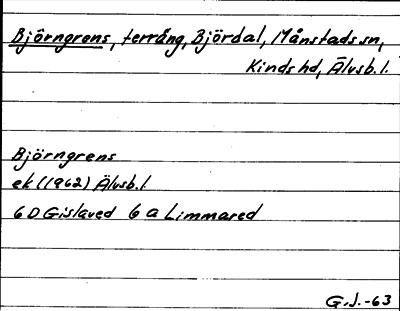 Björngrens, terräng, Björdal, Månstads sn,
Kinds hd, Älvsb. l.
Björngrens
ek (1962) Älvsb. l.
6 D Gislaved 6 a Limmared
G.J.-63